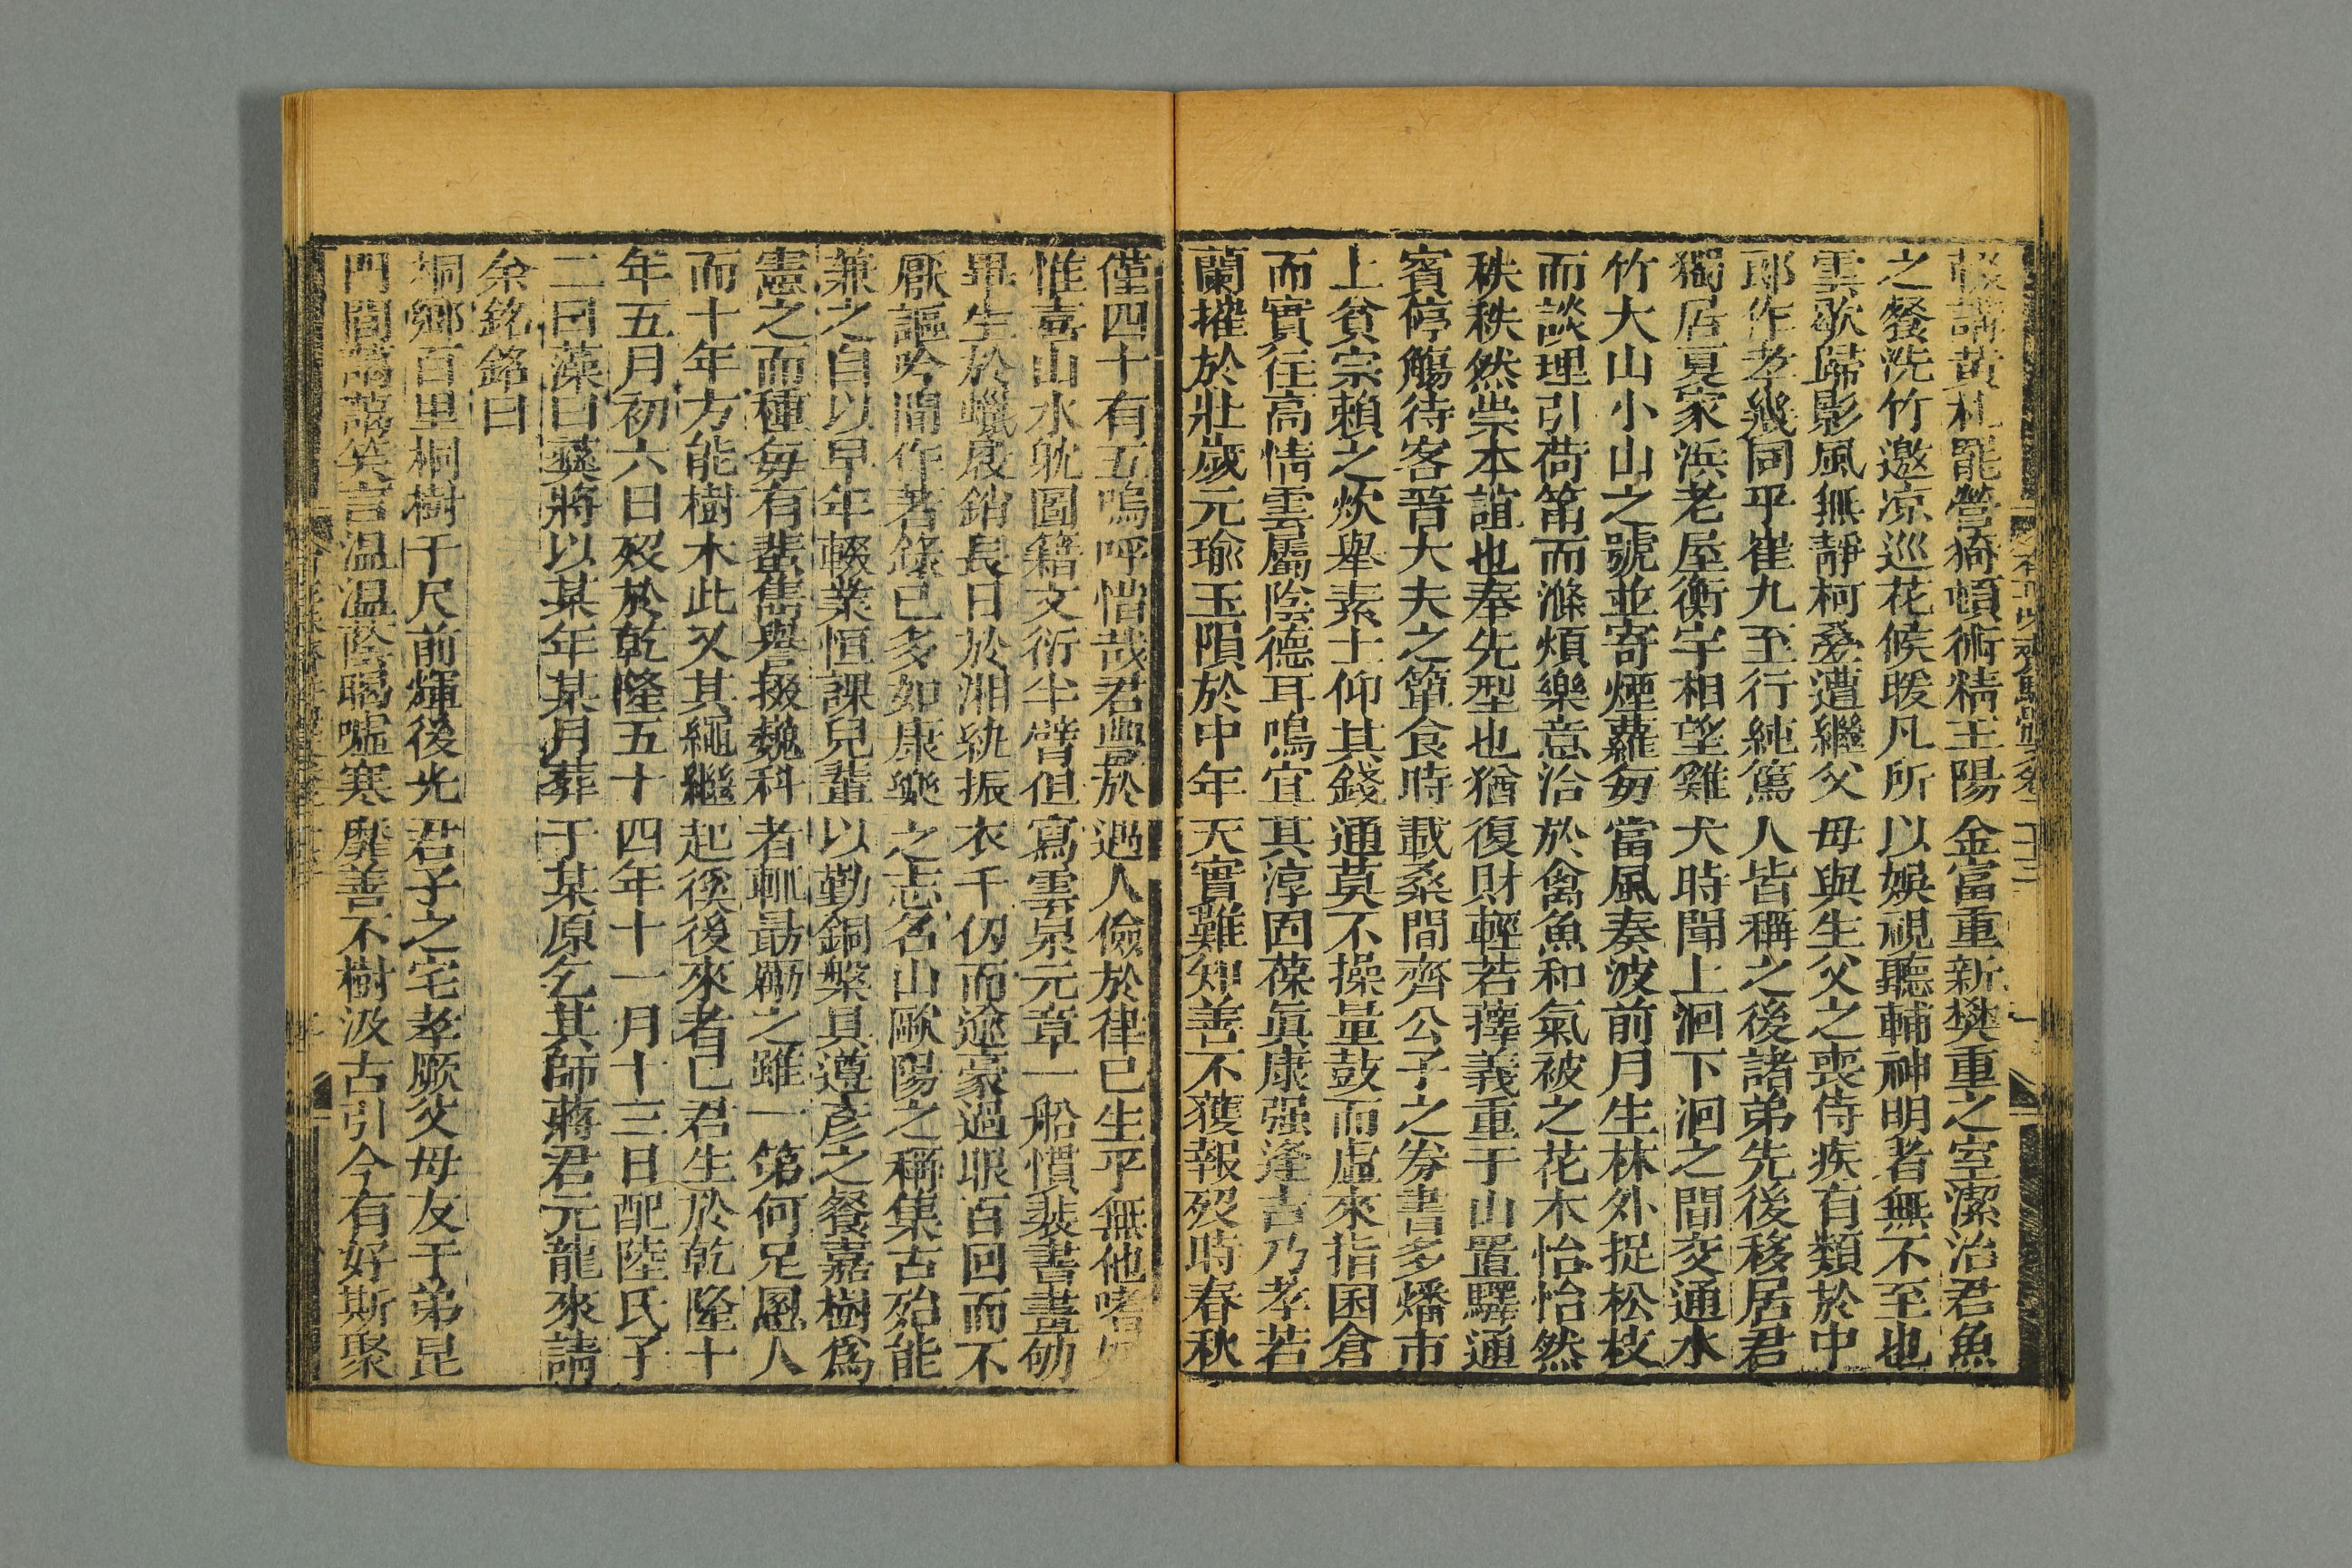 報讀黃札罷營猗頓術精王陽金富重新樊重之室潔治君魚
之餐洗竹邀凉巡花候暖凡所以娛視聽輔神明者無不至也
雲歌歸影風無靜柯叠遭繼父母與生父之喪侍疾有類於中
郎作孝幾同乎崔九至行純篤人皆稱之後諸弟先後移居君
獨居夏家浜老屋衡宇相望雞犬時聞上洄下洄之間交通水
竹大山小山之號並寄煙蘿每當風奏波前月生林外捉松枝
而談理引荷筩而滌煩樂意洽於禽魚和氣被之花木怡怡然
秩秩然崇本誼也奉先型也猶復財輕若蘀義重于山置驛通
賓停觴待客晉大夫之簞食時載桑間齊公子之券書多燔市
上貧宗賴之炊舉素士仰其錢通莫不操量鼓而虛來指囷倉
而實往高情雲屬陰德耳鳴宜其淳固葆眞康强逢吉乃孝若
蘭摧於壯歲元瑜玉隕於中年天實難知善不獲報歿時春秋
僅四十有五嗚呼惜哉君豐於過人儉於律己生平無他嗜
惟喜山水躭圖籍文衍半臂但寫雲泉元章一船慣裝書畫砌
畢生於蠟屐銷長日於湘紈振衣千仞而逾豪過眼百回而不
厭謳吟間作著錄已多如康樂之志名山歐陽之稱集古殆能
兼之自以早年輟業恒課兒輩以勤銅槃具遵彥之餐嘉樹爲
憲之而種每有蜚雋譽掇巍科者輒勗勵之雖一第何足慁人
而十年方能樹木此又其繩繼起後來者已君生於乾隆十
年五月初六日歿於乾隆五十四年十一月十三日配陸氏子
二曰藻曰蘷將以某年某月葬于某原乞其師蔣君元龍來請
余銘銘曰
桐鄉百里桐樹千尺前輝後光君子之宅孝厥父母友于弟昆
門閭藹藹笑言温温蔭暍噓寒靡善不樹汲古引今有好斯聚